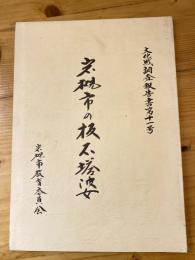 文化財調査報告書第十一号
岩槻市の板石塔婆
岩槻市教育委員会